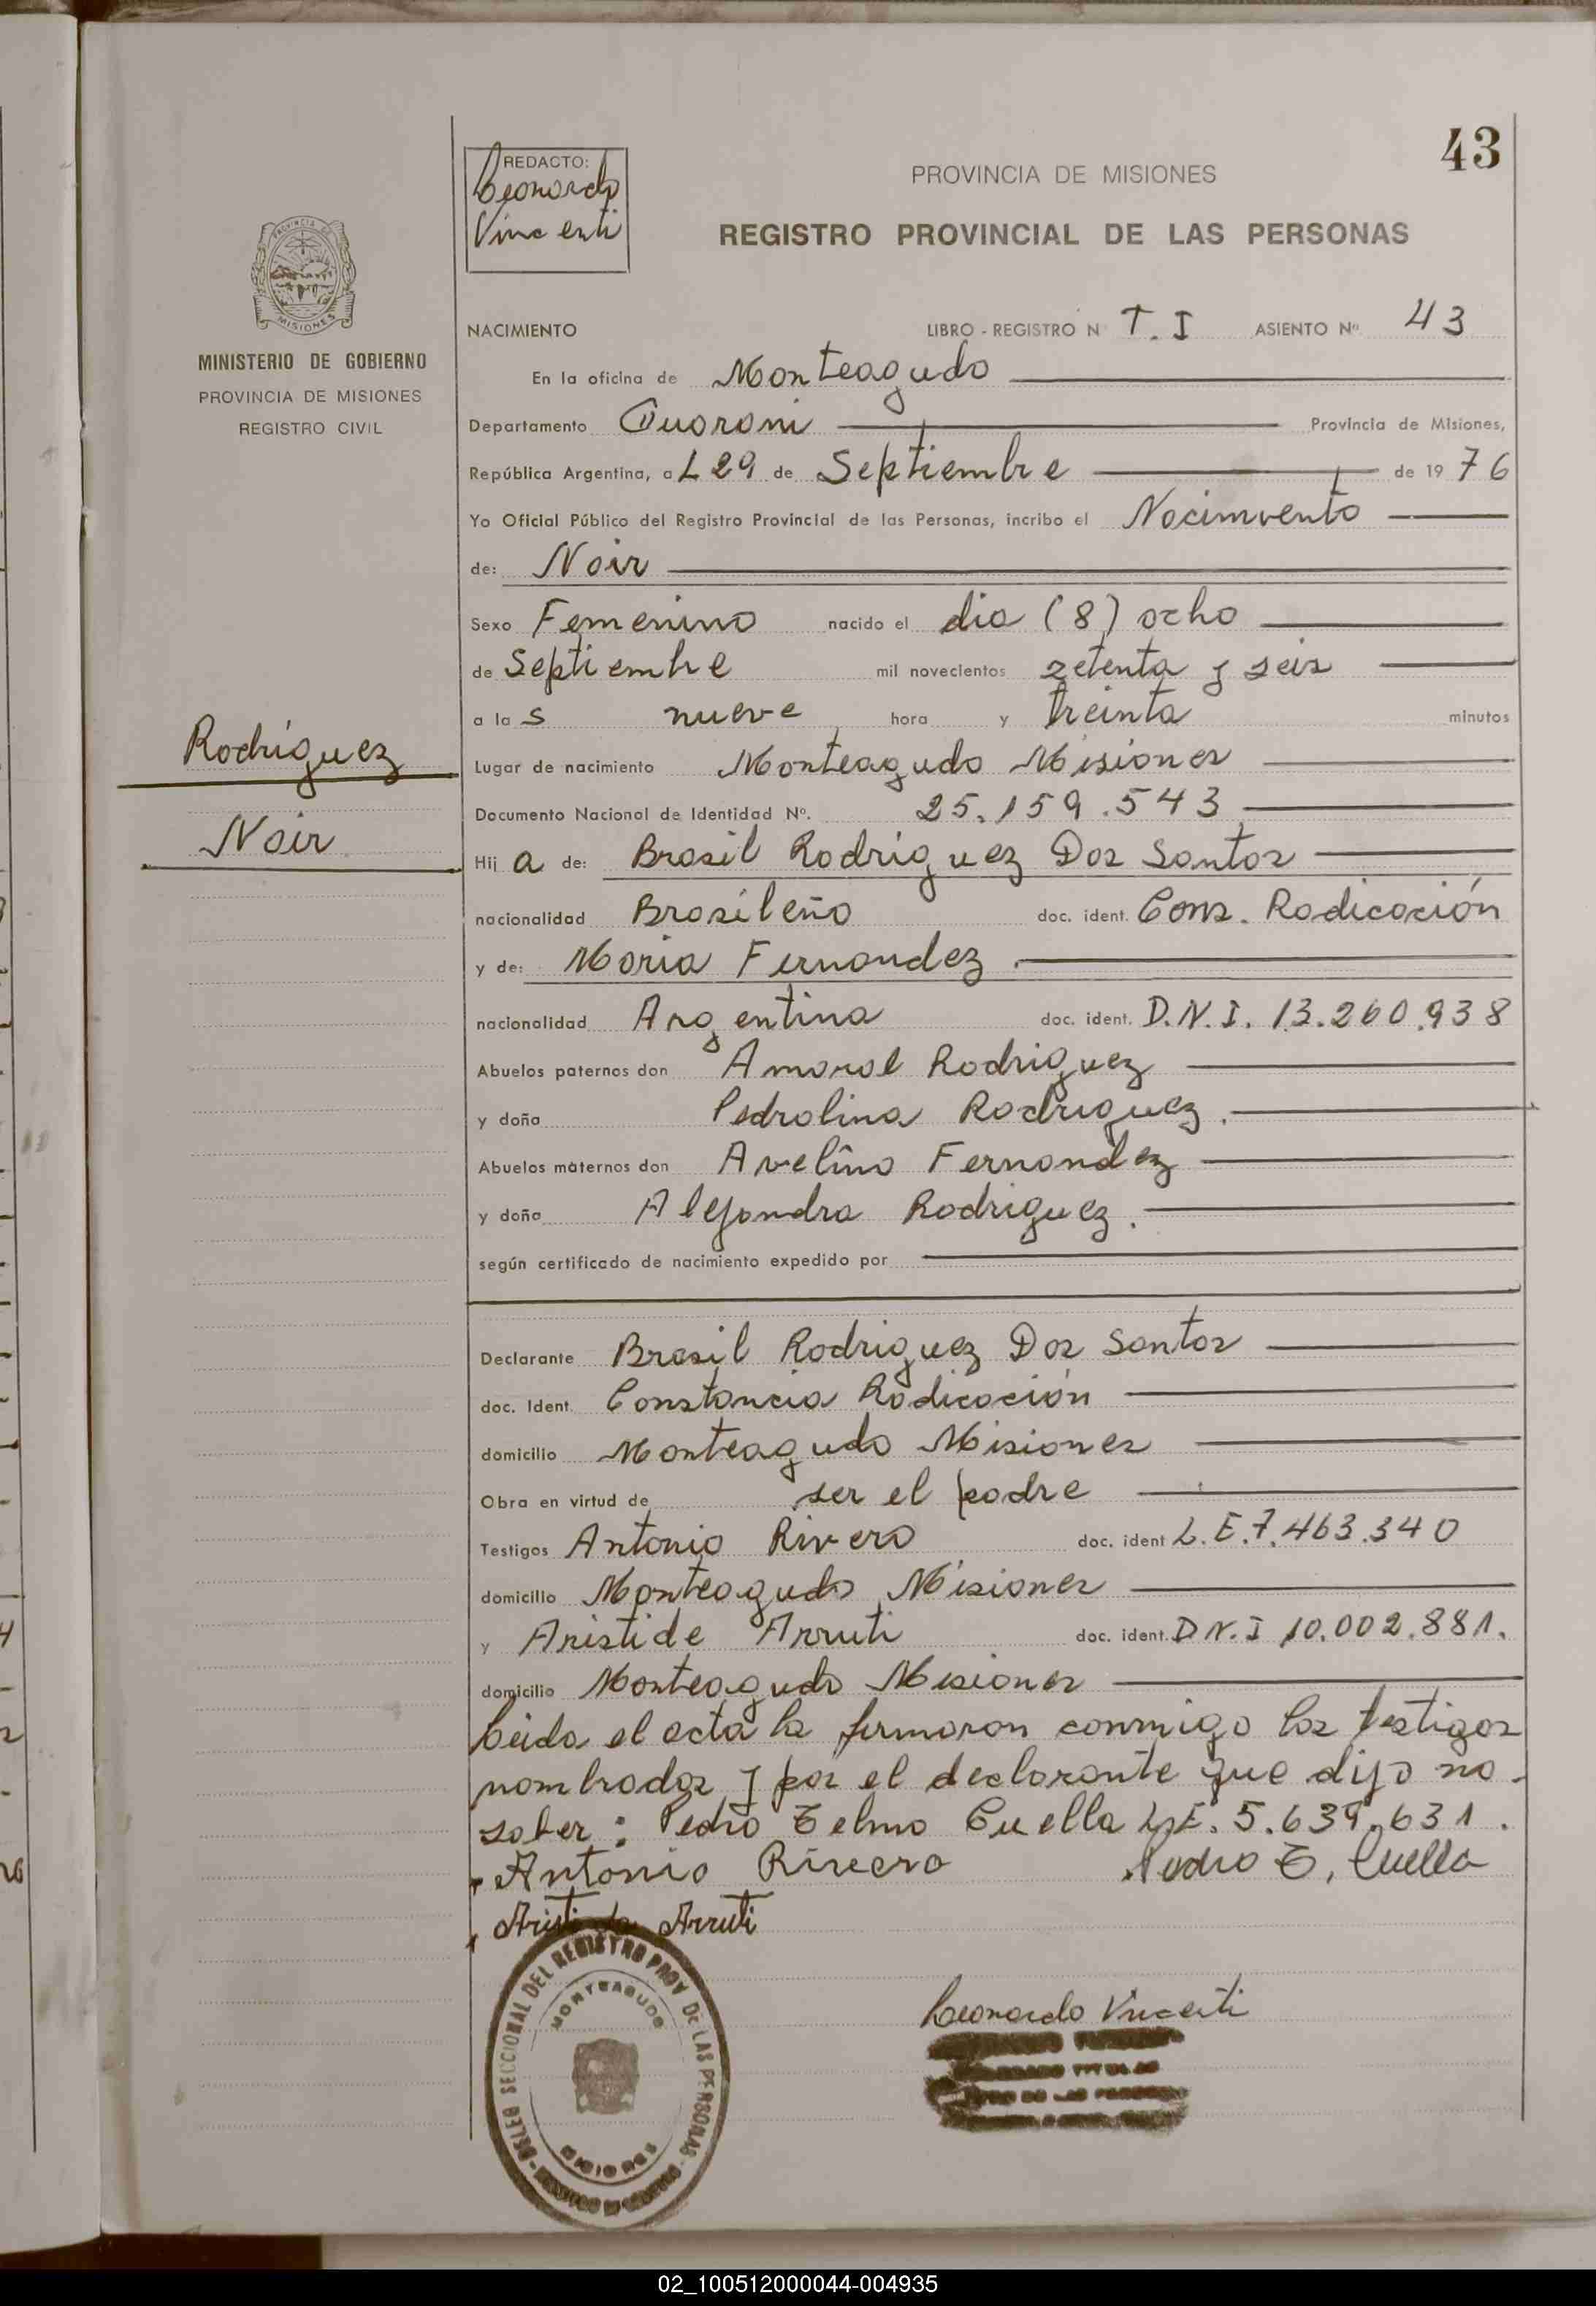 43
REDACTO:
Leonardo
Vincenti
PROVINCIA DE MISIONES
REGISTRO PROVINCIAL DE LAS PERSONAS
PROVINCIA DE
MISIONES
MINISTERIO DE GOBIERNO
PROVINCIA DE MISIONES
REGISTRO CIVIL
NACIMIENTO LIBRO - REGISTRO N T. I ASIENTO Nº 43
En la oficina de Monteagudo
Departamento Guarani Provincia de Misiones,
República Argentina, a L 29 de Septiembre de 19 76
Yo Oficial Público del Registro Provincial de las Personas, incribo el Nacimiento
de: Noir
Sexo Femenino nacido el dia (8) ocho
de Septiembre mil novecientos setenta y seis
a la s nueve hora y treinta minutos
Rodriguez
Noir
Lugar de nacimiento Monteagudo Misiones
Documento Nacional de Identidad Nº. 25.159.543
Hij a de: Brasil Rodriguez Dos Santos
nacionalidad Brasileño doc. ident. Cons. Radicación
y de: Maria Fernandez
nacionalidad Argentina doc. ident. D.N.I. 13.260.938
Abuelos paternos don Amaral Rodriguez
y doña Pedrolina Rodriguez.
Abuelos maternos don Avelino Fernandez
y doña Alejandra Rodriguez.
según certificado de nacimiento expedido por
Declarante Brasil Rodriguez Dos Santos
doc. Ident. Constancia Radicación
domicilio Monteagudo Misiones
Obra en virtud de ser el padre
Testigos Antonio Rivero doc. ident L.E. 7.463.340
domicilio Monteagudo Misiones
y Aristide Arruti doc. ident. D.N.I 10.002.881.
domicilio Monteagudo Misiones
Leida el acta la firmaron conmigo los testigos
nombrados y por el declarante que dijo no
saber: Pedro Telmo Cuella L.E. 5.639.631.
Antonio Rivero Pedro T. Cuella
Aristide Arruti
DELEG SECCIONAL DEL REGISTRO PROV DE LAS PERSONAS
MONTEAGUDO
MISIONES
Leonardo Vincenti
02_100512000044-004935